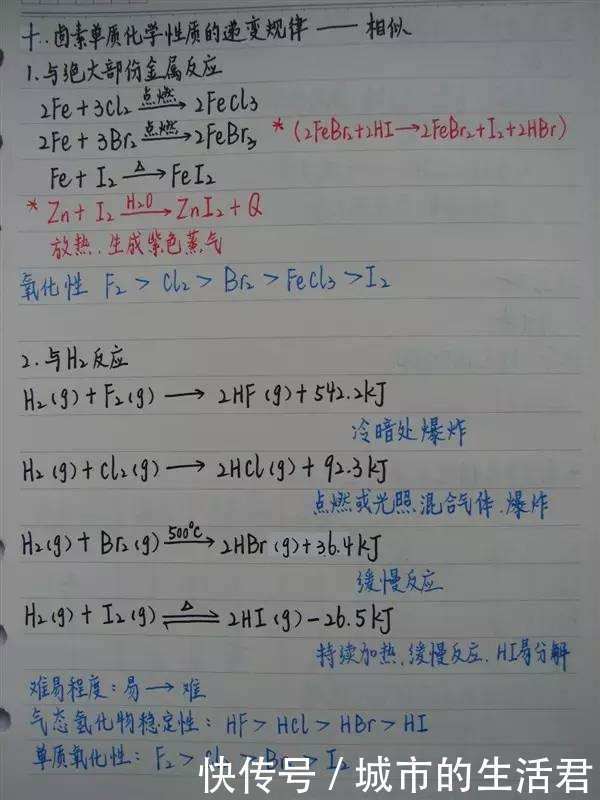 十.卤素单质化学性质的递变规律 —— 相似
1.与绝大部份金属反应
2Fe+3Cl₂ —点燃→ 2FeCl₃
2Fe+3Br₂ —点燃→ 2FeBr₃ *(2FeBr₃+2HI→2FeBr₂+I₂+2HBr)
Fe+I₂ —△→ FeI₂
* Zn+I₂ —H₂O→ ZnI₂+Q
放热.生成紫色蒸气
氧化性 F₂>Cl₂>Br₂>FeCl₃>I₂
2.与H₂反应
H₂(g)+F₂(g) → 2HF(g)+542.2kJ
冷暗处爆炸
H₂(g)+Cl₂(g) → 2HCl(g)+92.3kJ
点燃或光照.混合气体.爆炸
H₂(g)+Br₂(g) —500℃→ 2HBr(g)+36.4kJ
缓慢反应
H₂(g)+I₂(g) ⇌△ 2HI(g)-26.5kJ
持续加热.缓慢反应.HI易分解
难易程度:易→难
气态氢化物稳定性:HF>HCl>HBr>HI
单质氧化性:F₂>Cl₂>Br₂>I₂
快传号/城市的生活君